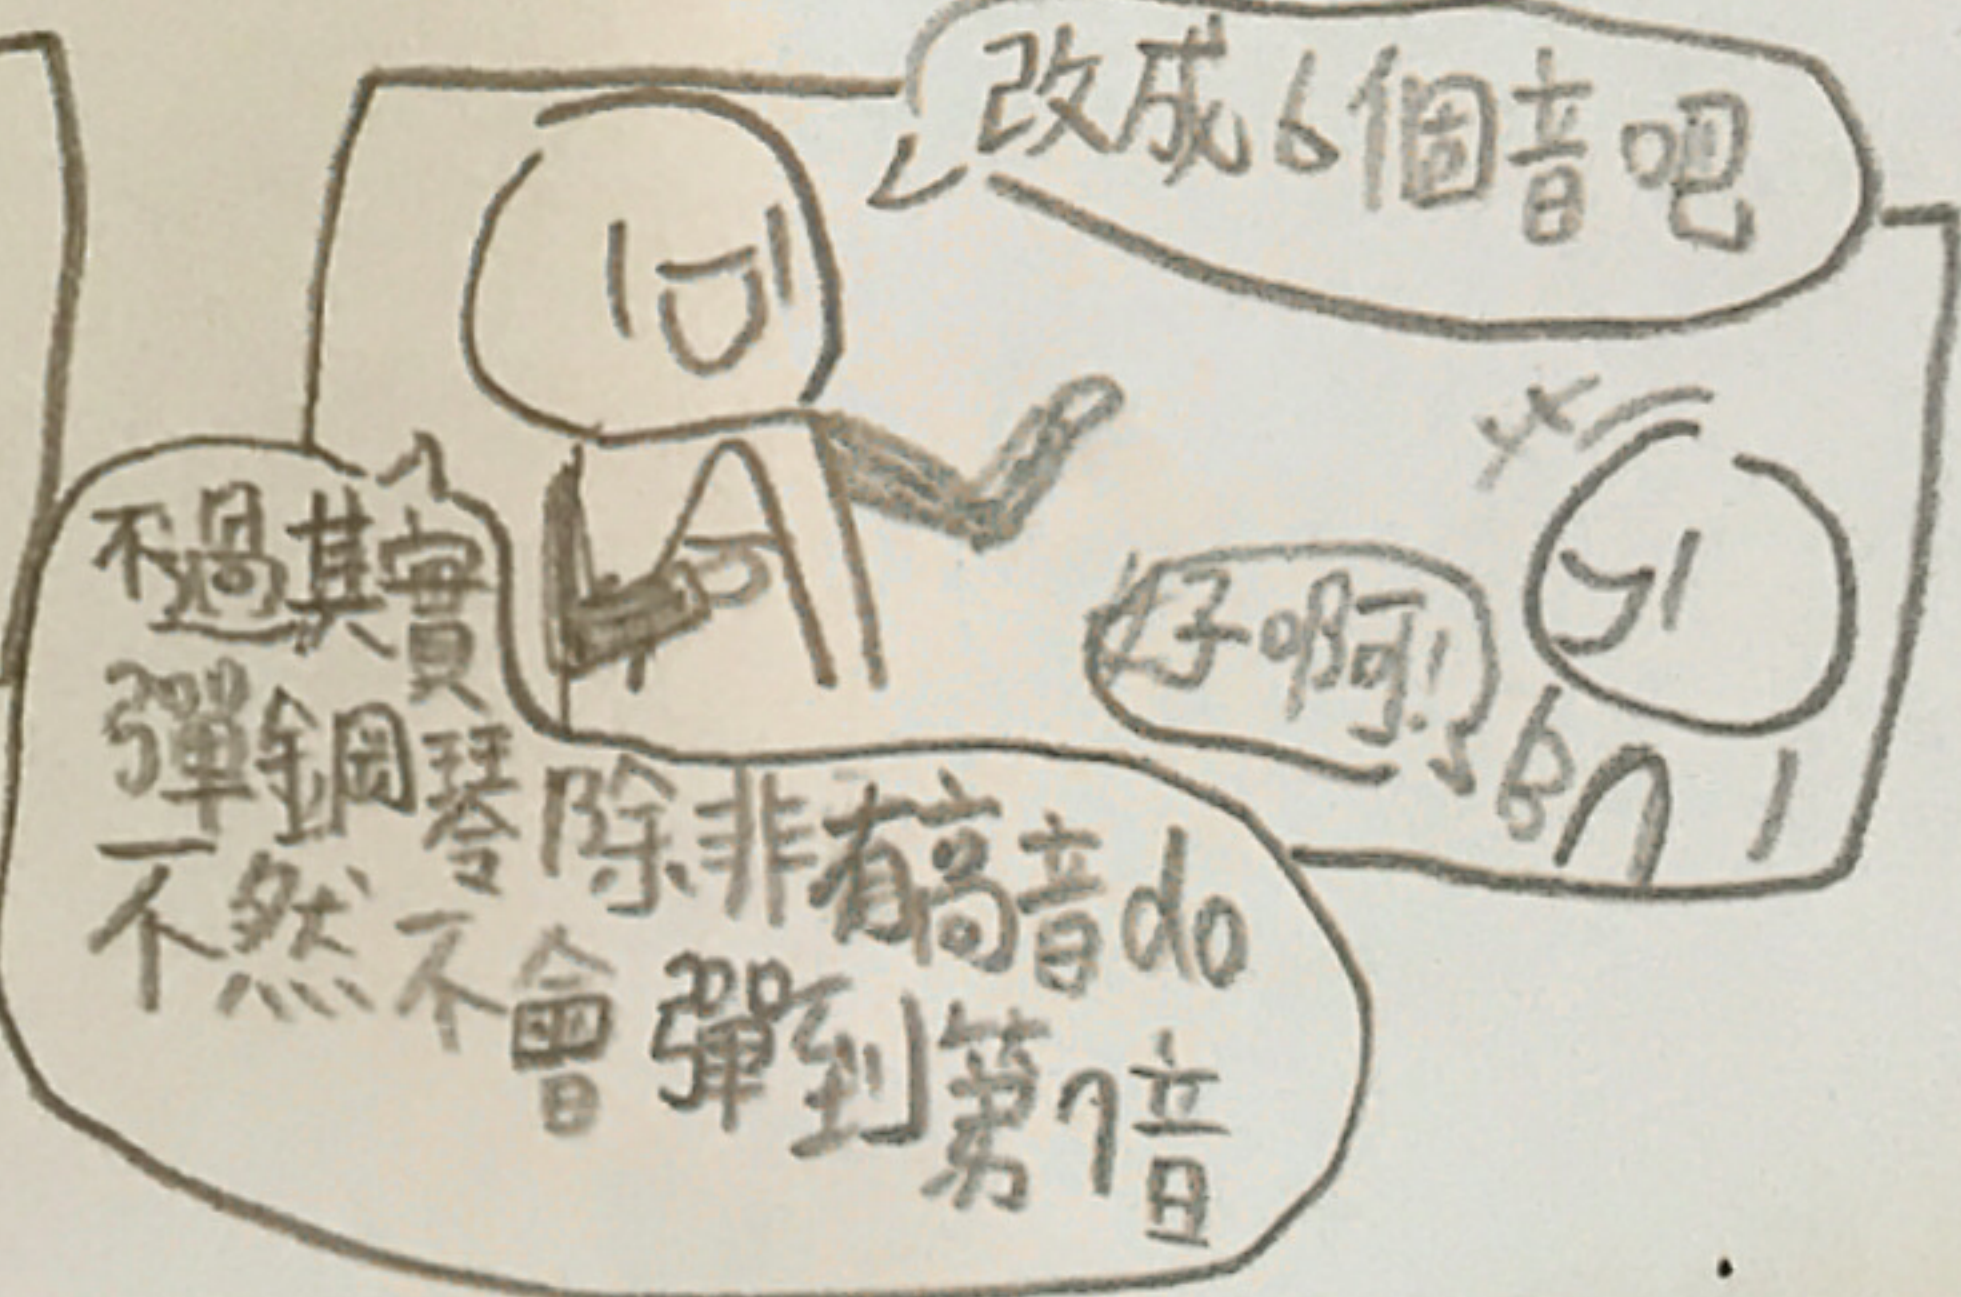 改成6個音吧
好啊!
不過其實
彈鋼琴除非有高音do
不然不會彈到第7音